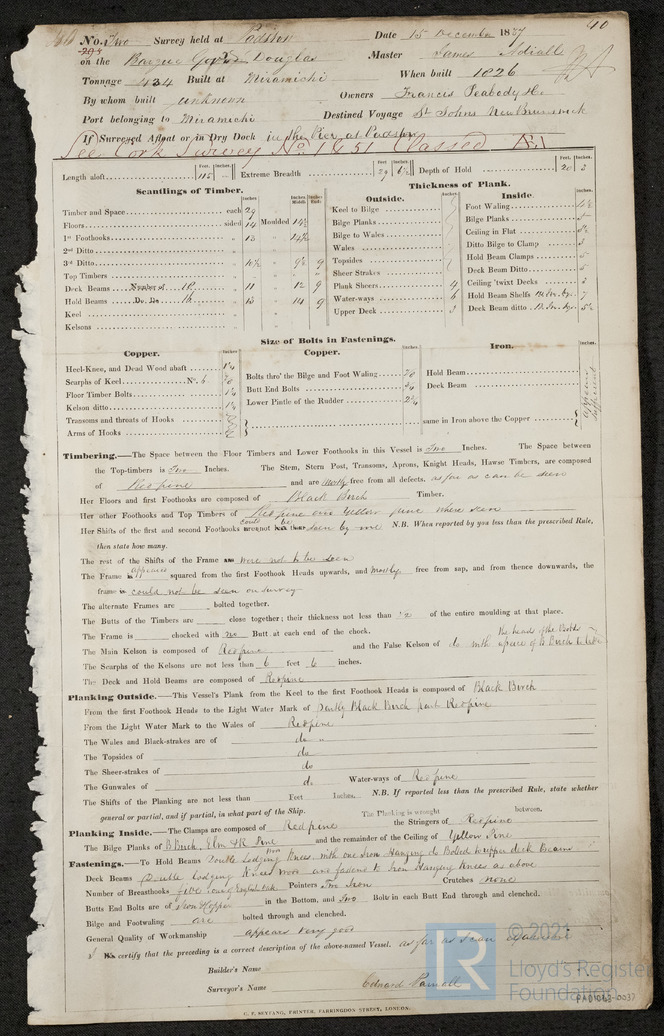 No. Two Survey held at Padstow Date 15 December 1837
on the Barque Govr Douglas Master James
Tonnage 434 Built at Miramichi When built 1826
By whom built unknown Owners Francis Peabody & Co.
Port belonging to Miramichi Destined Voyage St Johns New Brunswick
If Surveyed Afloat or in Dry Dock in the Pier at Padstow
See Cork Survey No. 1851 Classed Æ1
Length aloft Feet. 115 Inches. Extreme Breadth Feet. 29 Inches. Depth of Hold Feet. 20 Inches. 3
Scantlings of Timber.
Timber and Space each 29
Floors sided 14 Moulded 14½
1st Foothooks 13
2nd Ditto
3rd Ditto 9
Top Timbers
Deck Beams Number of 18 11 12 9
Hold Beams Do. Do. 13 14 9
Keel
Kelsons
Thickness of Plank.
Outside.
Keel to Bilge
Bilge Planks
Bilge to Wales
Wales
Topsides
Sheer Strakes
Plank Sheers 4
Water-ways 6
Upper Deck 3
Inside.
Foot Waling
Bilge Planks
Ceiling in Flat
Ditto Bilge to Clamp 3
Hold Beam Clamps 5
Deck Beam Ditto 5
Ceiling 'twixt Decks 3
Hold Beam Shelfs 7
Deck Beam ditto
Size of Bolts in Fastenings.
Copper.
Heel-Knee, and Dead Wood abaft
Scarphs of Keel No. 6
Floor Timber Bolts
Kelson ditto
Transoms and throats of Hooks
Arms of Hooks
Copper.
Bolts thro' the Bilge and Foot Waling
Butt End Bolts
Lower Pintle of the Rudder
Iron.
Hold Beam
Deck Beam
same in Iron above the Copper
appears sufficient
Timbering.—The Space between the Floor Timbers and Lower Foothooks in this Vessel is Two Inches. The Space between
the Top-timbers is Two Inches. The Stem, Stern Post, Transoms, Aprons, Knight Heads, Hawse Timbers, are composed
of Red pine and are mostly free from all defects. as far as can be seen
Her Floors and first Foothooks are composed of Black Birch Timber.
Her other Foothooks and Top Timbers of Red pine and Yellow pine where seen
Her Shifts of the first and second Foothooks could not be seen by me N.B. When reported by you less than the prescribed Rule,
then state how many.
The rest of the Shifts of the Frame were not to be seen
The Frame appears squared from the first Foothook Heads upwards, and mostly free from sap, and from thence downwards, the
frame is could not be seen on survey
The alternate Frames are bolted together.
The Butts of the Timbers are close together; their thickness not less than of the entire moulding at that place.
The Frame is chocked with no Butt at each end of the chock.
The Main Kelson is composed of Red pine and the False Kelson of do with a piece of B Birch the heads of the Bolts
The Scarphs of the Kelsons are not less than 6 feet 6 inches.
The Deck and Hold Beams are composed of Red pine
Planking Outside.—This Vessel's Plank from the Keel to the first Foothook Heads is composed of Black Birch
From the first Foothook Heads to the Light Water Mark of Partly Black Birch part Red pine
From the Light Water Mark to the Wales of Red pine
The Wales and Black-strakes are of do
The Topsides of do
The Sheer-strakes of do
The Gunwales of do Water-ways of Red pine
The Shifts of the Planking are not less than Feet Inches. N.B. If reported less than the prescribed Rule, state whether
general or partial, and if partial, in what part of the Ship. The Planking is wrought between.
Planking Inside.—The Clamps are composed of Red pine the Stringers of Red pine
The Bilge Planks of B Birch, Elm & R Pine and the remainder of the Ceiling of Yellow Pine
Fastenings.—To Hold Beams Double Lodging Knees with one Iron Hanging do Bolted to upper deck Beams
Deck Beams Double Lodging Knees and fastend to Iron Hanging Knees as above
Number of Breasthooks five Pointers Two Iron Crutches none
Butts End Bolts are of Iron & Copper in the Bottom, and Two Bolt in each Butt End through and clenched.
Bilge and Footwaling are bolted through and clenched.
General Quality of Workmanship appears very good
I certify that the preceding is a correct description of the above-named Vessel. as far as I can
Builder's Name
Surveyor's Name Edward Parnall
C. F. SEYFANG, PRINTER, FARRINGDON STREET, LONDON.
LR © 2021
Lloyd's Register
Foundation